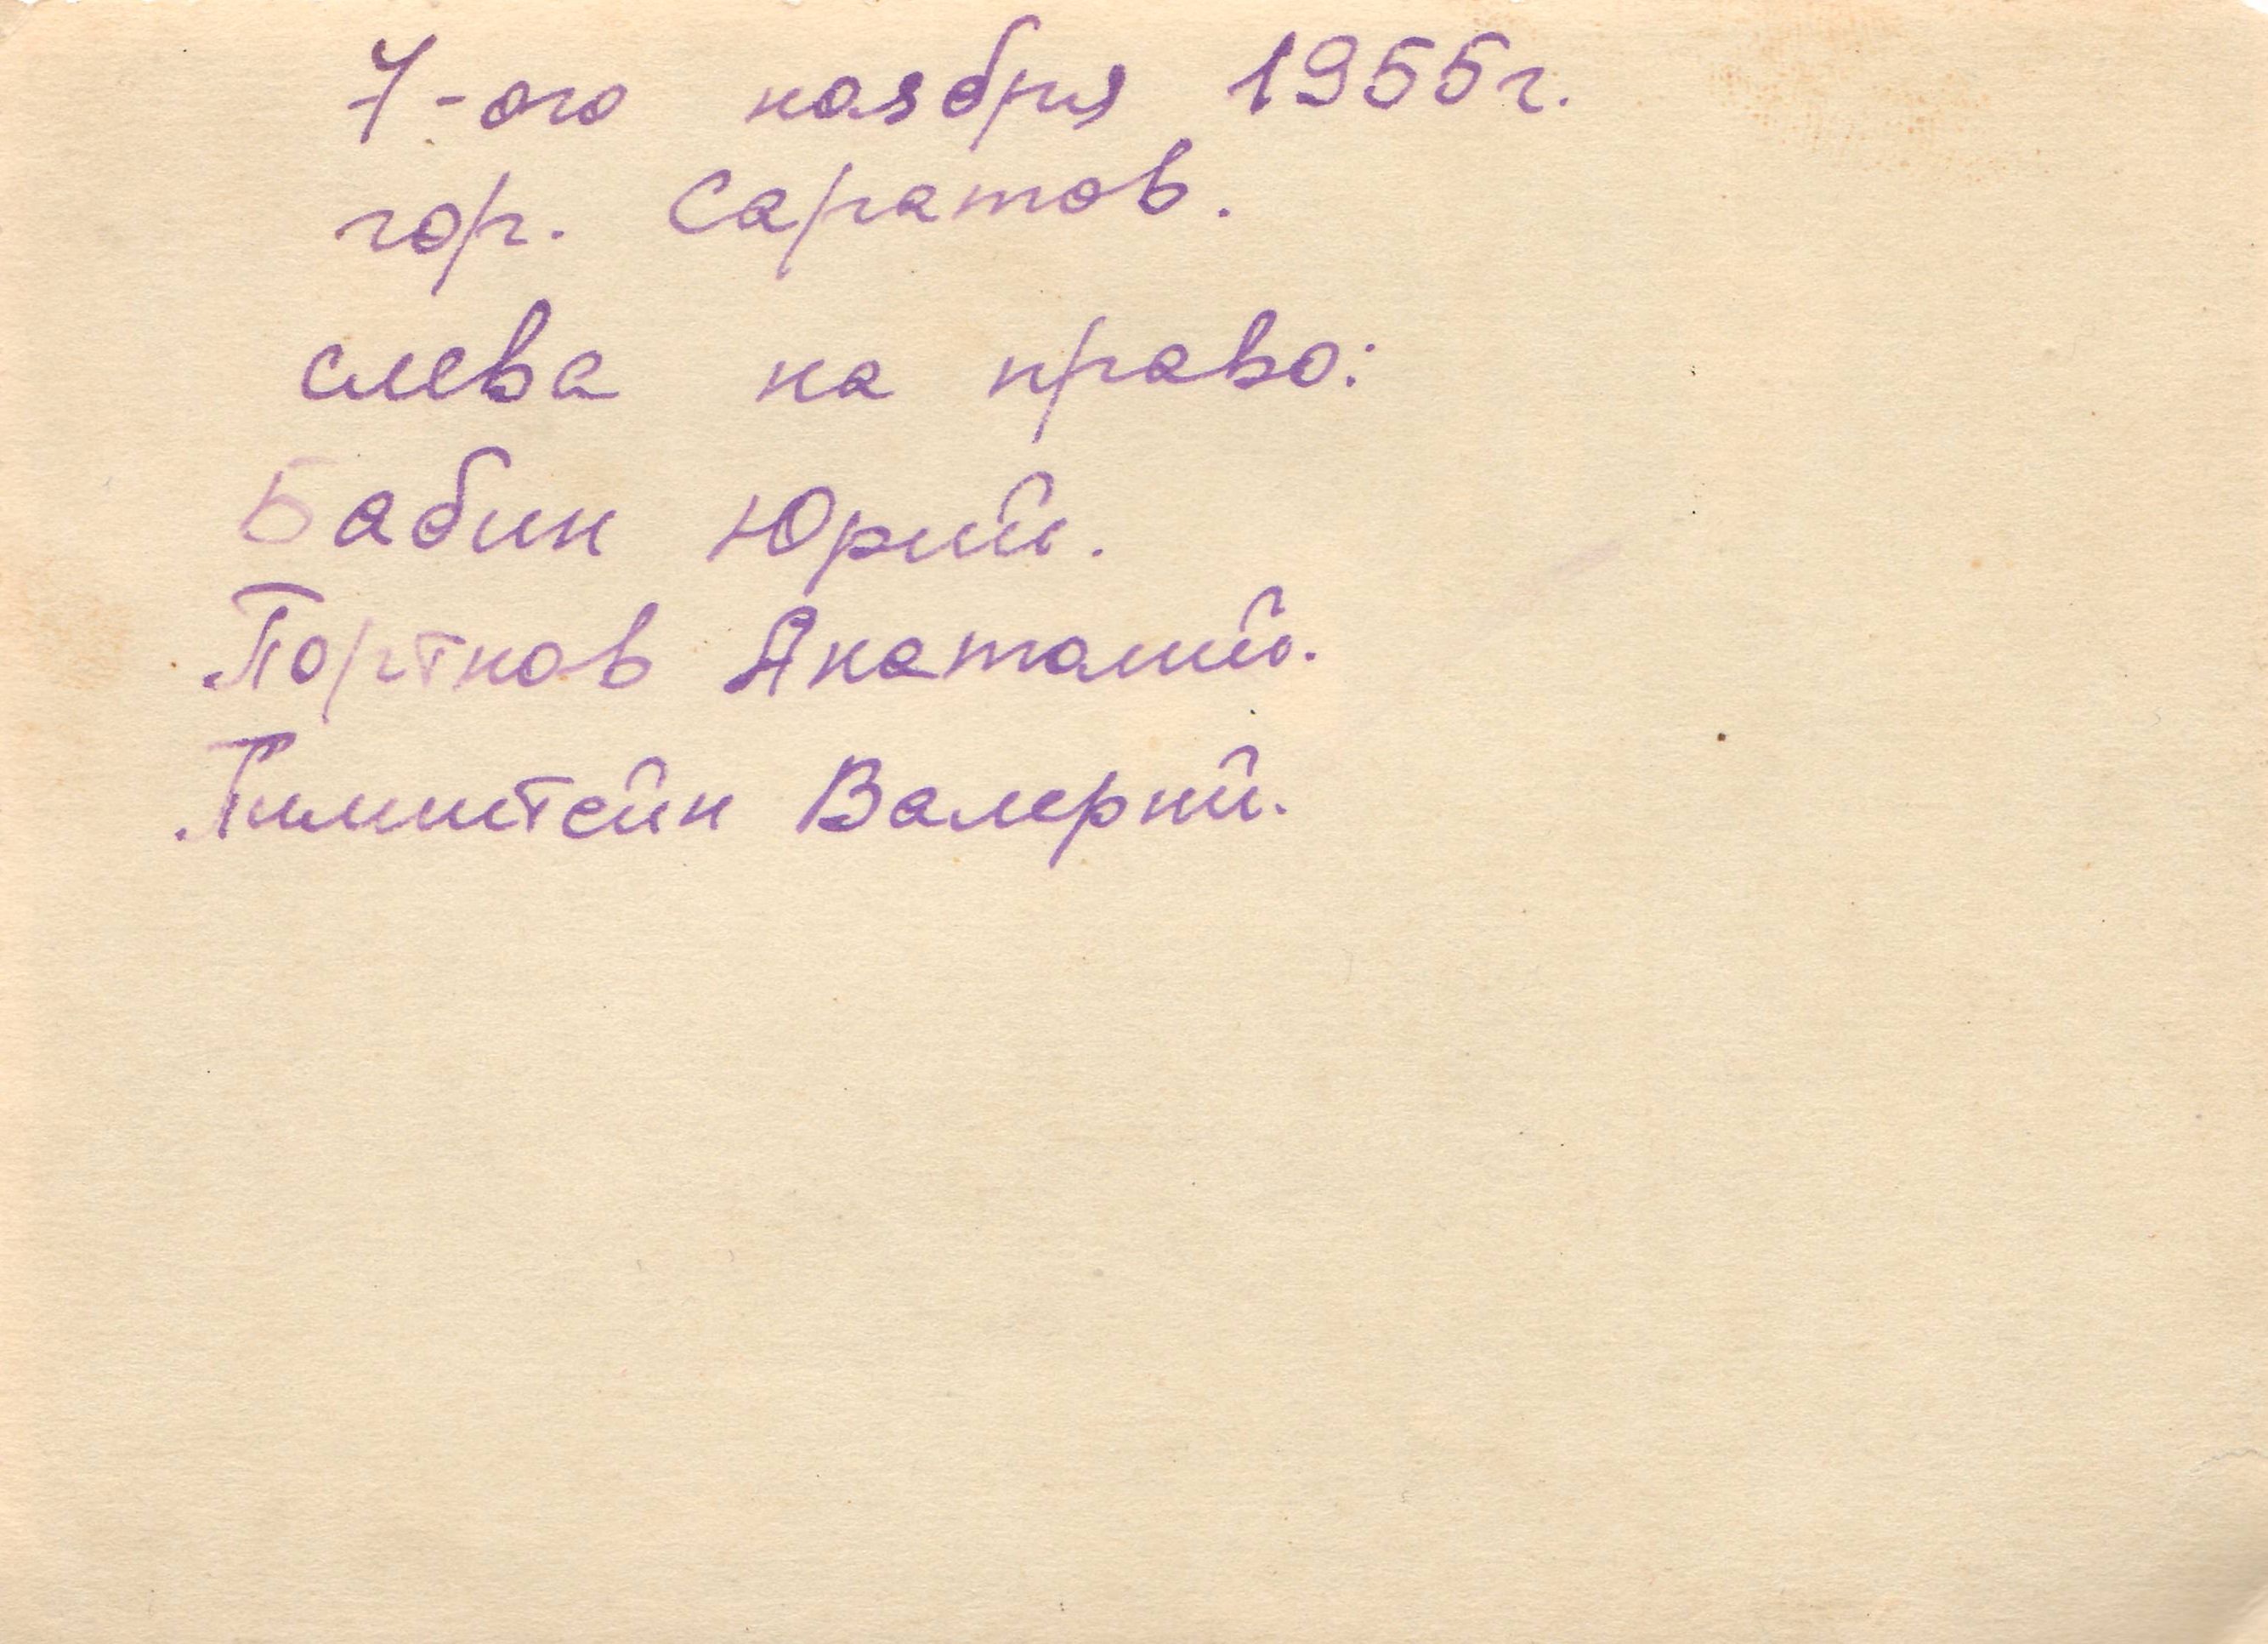 7-ого ноября 1955г.
гор. Саратов.
слева на право:
Бабин Юрий.
Портнов Анатолий.
Валерий.